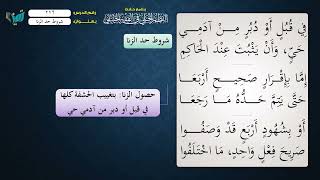 رقم الدرس
٢٢٦
عنوانه
شروط حد الزنا
شروط حد الزنا
حصول الزنا: بتغييب الحشفة كلها
في قبل أو دبر من آدمي حي
فِي قُبُلٍ أَوْ دُبُرٍ مِنْ آدَمِيْ
حَيٍّ، وَأَنْ يَثْبُتَ عِنْدَ الْحَاكِمِ
إِمَّا بِإِقْرَارِ صَحِيحٍ أَرْبَعَا
حَتَّى يَتِمَّ حَدُّهُ مَا رَجَعَا
أَوْ بِشُهُودٍ أَرْبَعٍ قَدْ وَصَفُوا
صَرِيحَ فِعْلٍ وَاحِدٍ، مَا اخْتَلَفُوا